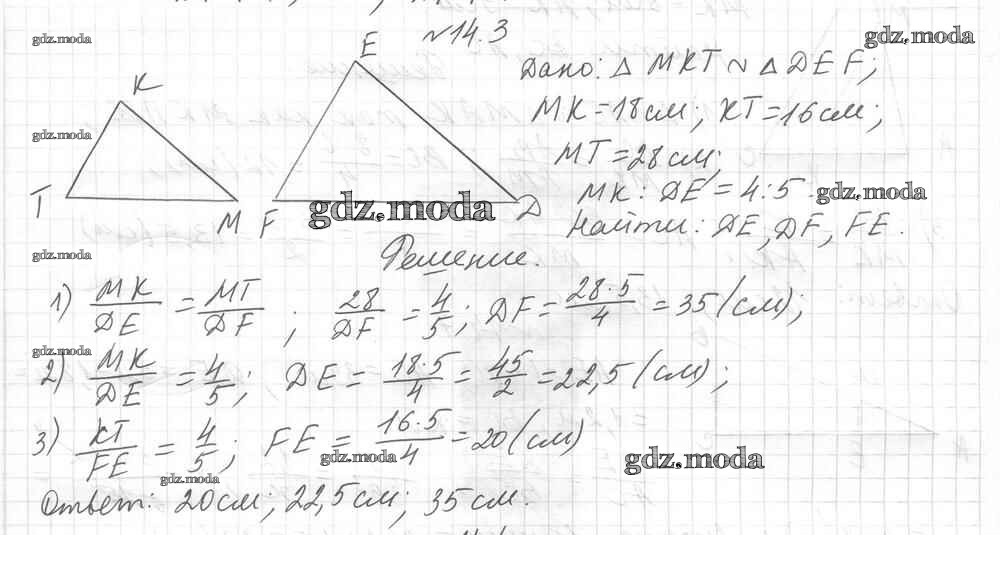 №14.3
gdz.moda
gdz.moda
E
K
Дано: △ MKT ~ △ DEF;
MK = 18 см; KT = 16 см;
gdz.moda
MT = 28 см;
MK : DE = 4:5
gdz.moda
T M F D
gdz.moda
Найти: DE, DF, FE.
gdz.moda
Решение.
1) MK/DE = MT/DF; 28/DF = 4/5; DF = 28·5/4 = 35 (см);
gdz.moda
2) MK/DE = 4/5; DE = 18·5/4 = 45/2 = 22,5 (см);
3) KT/FE = 4/5; FE = 16·5/4 = 20 (см)
gdz.moda
gdz.moda
gdz.moda
Ответ: 20 см; 22,5 см; 35 см.